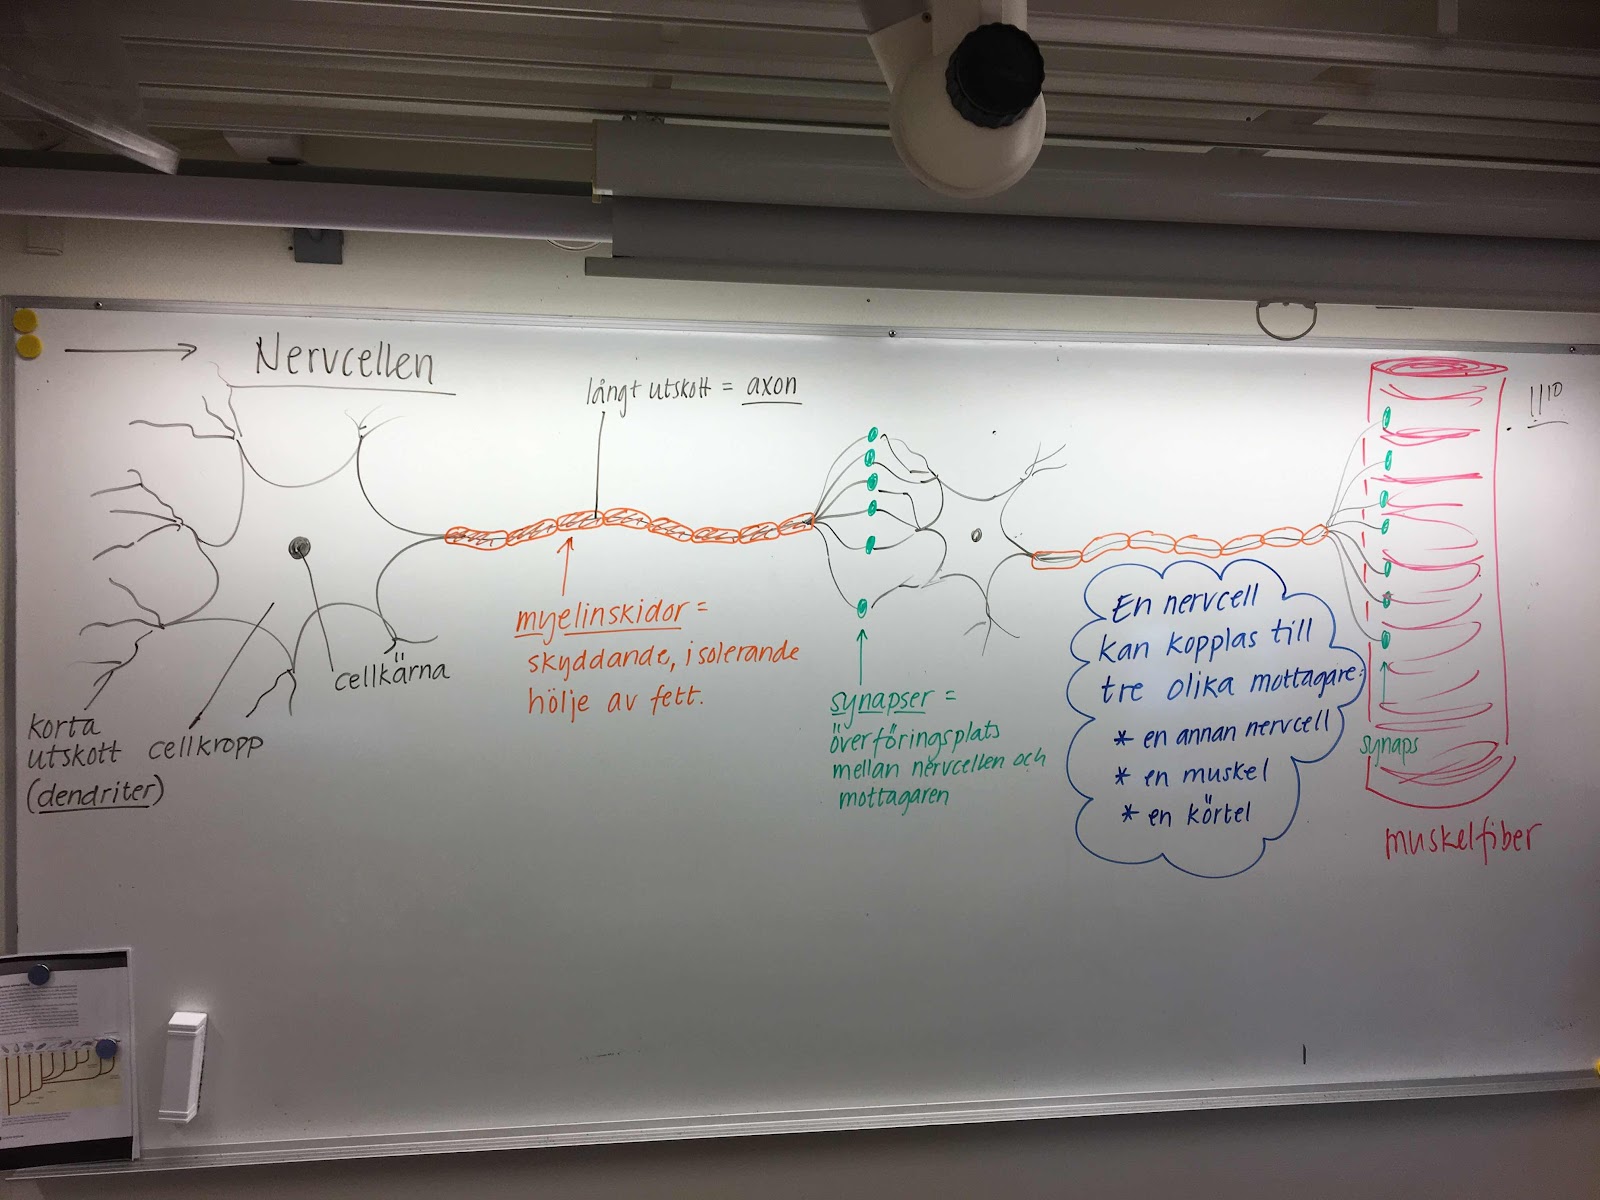 Nervcellen
långt utskott = axon
myelinskidor =
skyddande, isolerande
hölje av fett.
cellkärna
cellkropp
korta
utskott
(dendriter)
synapser =
överföringsplats
mellan nervcellen och
mottagaren
En nervcell
kan kopplas till
tre olika mottagare:
* en annan nervcell
* en muskel
* en körtel
synaps
muskelfiber